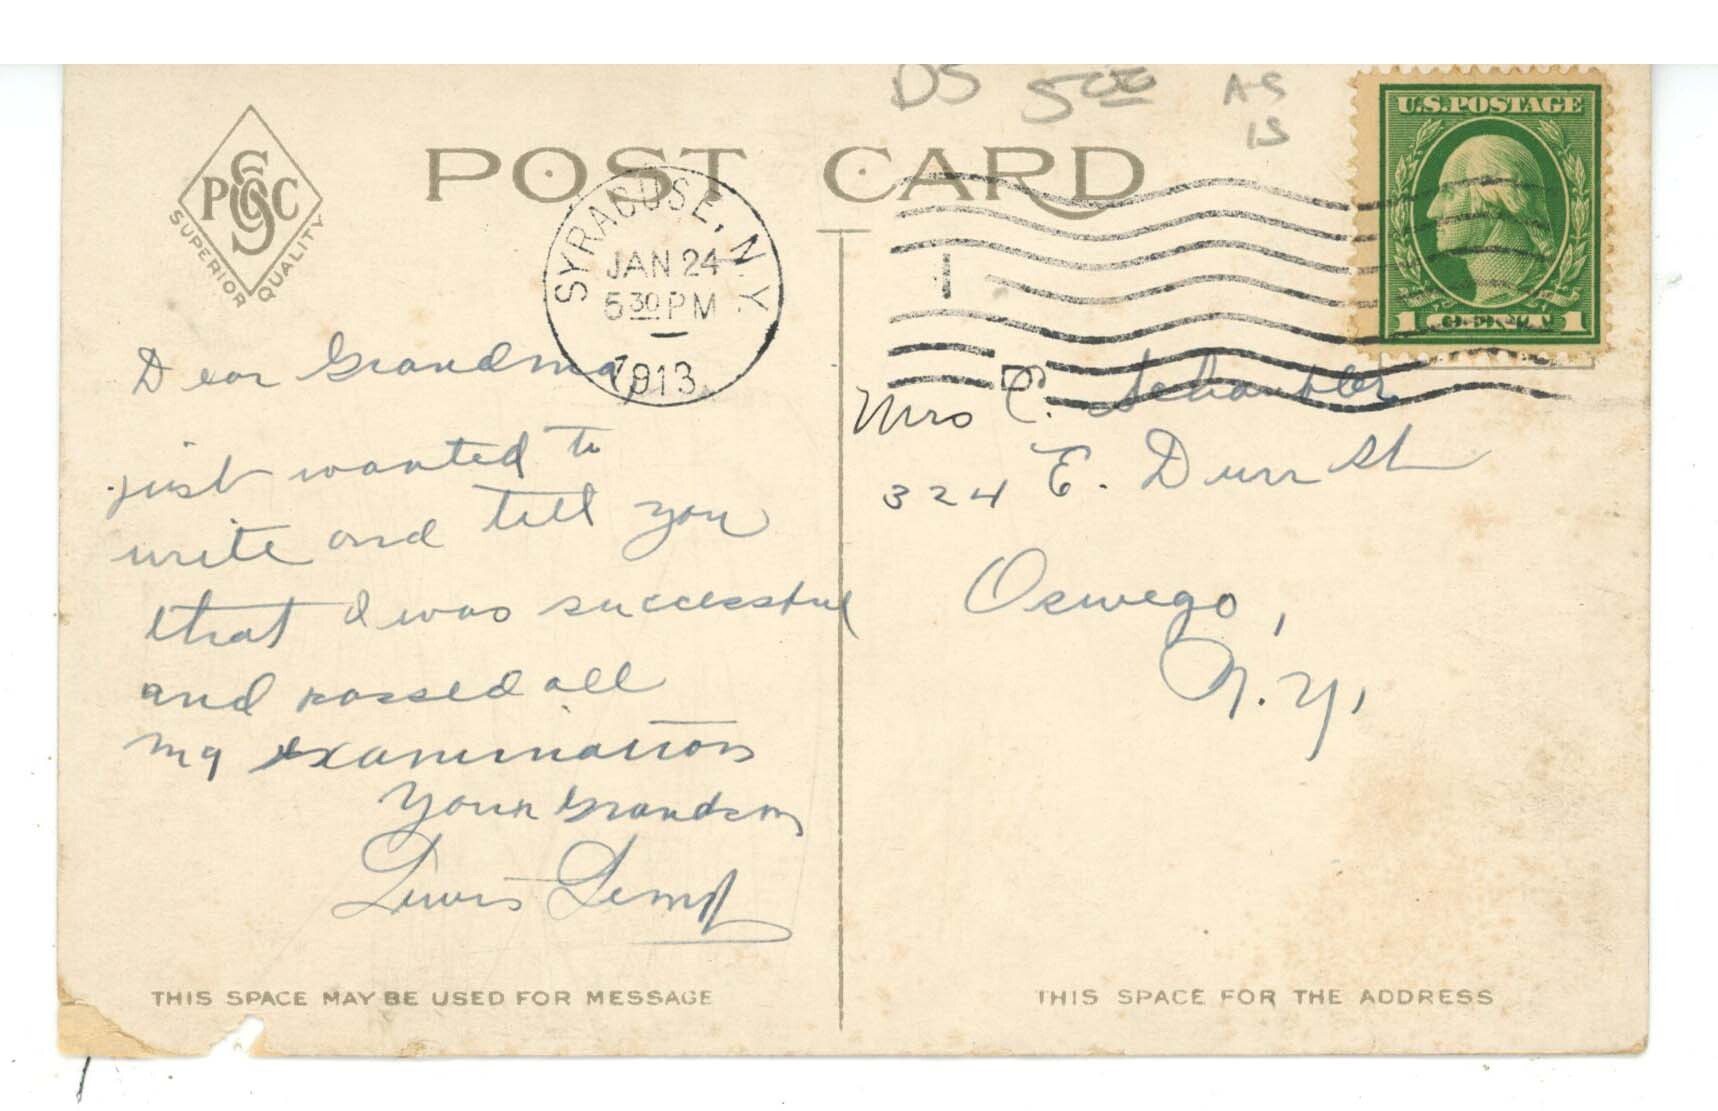 DS 5.00 AS
IS
U.S. POSTAGE
1 1
POST CARD
PSCC
SUPERIOR QUALITY
SYRACUSE, N.Y.
JAN 24
5 30 PM
1913
Dear Grandma,
just wanted to
write and tell you
that I was successful
and passed all
my examinations
Your Grandson
Lewis
Mrs C.
324 E. Durr St
Oswego,
N.Y.
THIS SPACE MAY BE USED FOR MESSAGE
THIS SPACE FOR THE ADDRESS